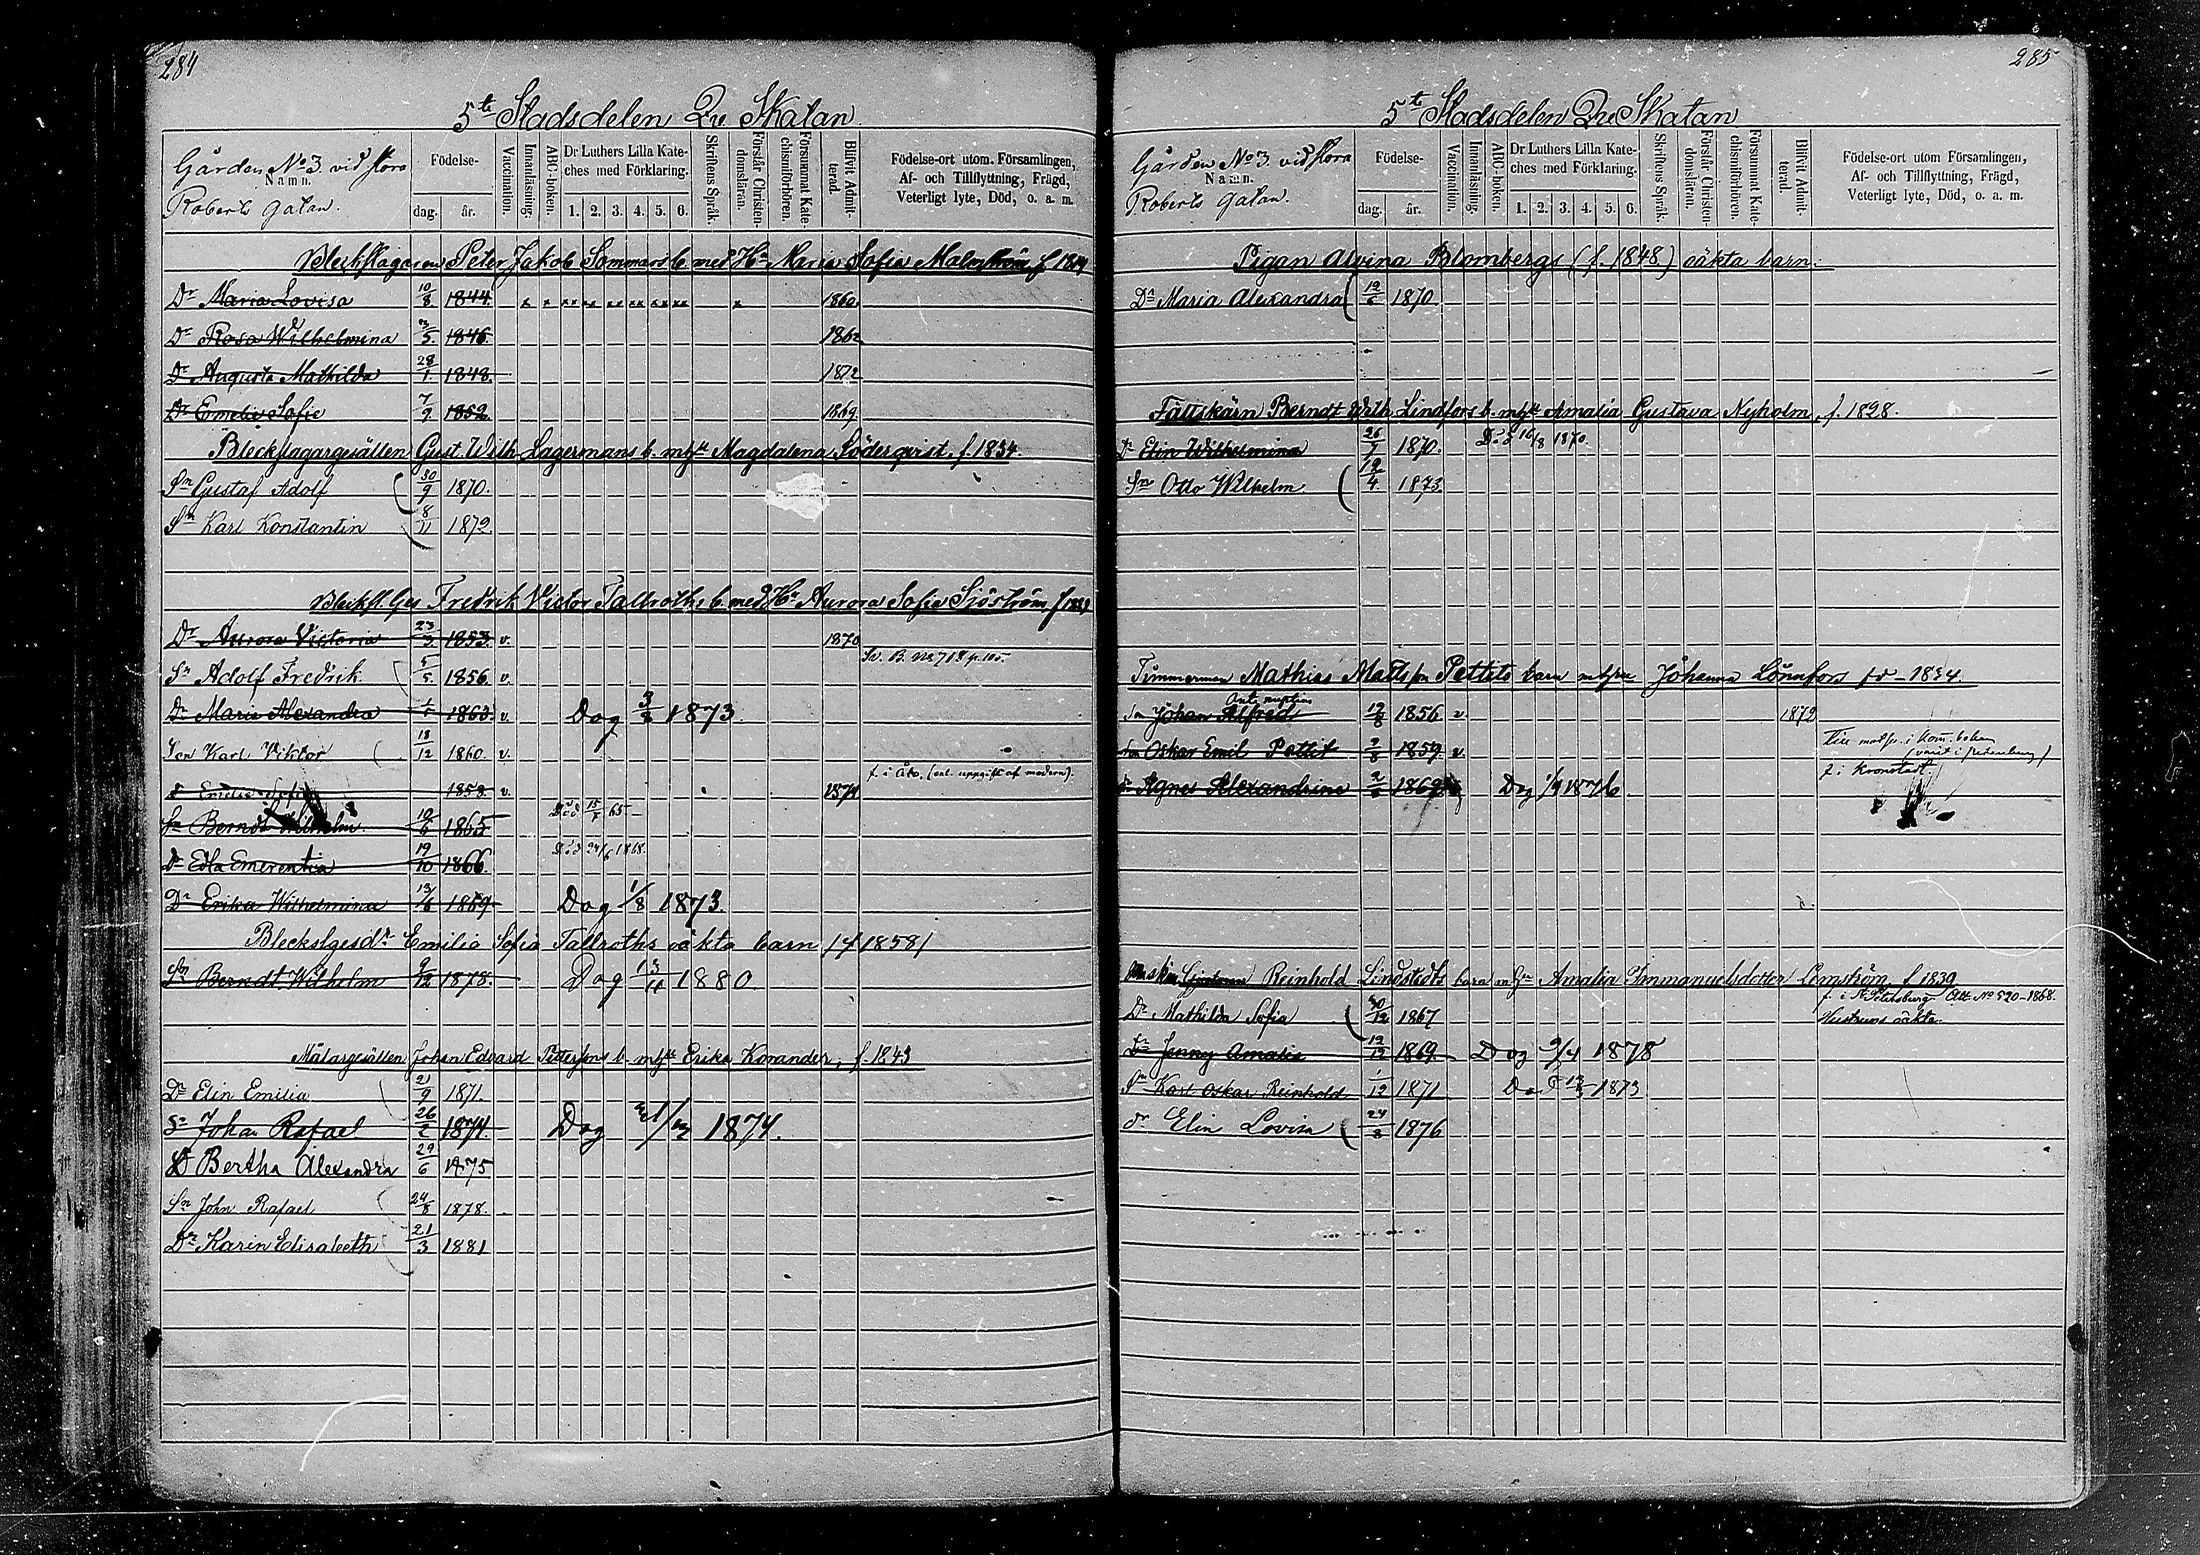 284
5te Stadsdelen Qu Skatan
Gården No 3. vid stora
Namn.
Roberts gatan.
Födelse-
dag. år.
Vaccination.
Innanläsning.
ABC-boken.
Dr Luthers Lilla Kate-
ches med Förklaring.
1. 2. 3. 4. 5. 6.
Skriftens Språk.
Förstår Christen-
domsläran.
Försummat Kate-
chismiförhören.
Blifvit Admit-
terad.
Födelse-ort utom Församlingen,
Af- och Tillflyttning, Frägd,
Veterligt lyte, Död, o. a. m.
Bleckslagaren Peter Jakob Sommars b. med Ha Maria Sofia Malmström f
Dr Maria Lovisa 10/8 1844 x x xx xx xx xx xx xx x 1860.
Dr Rosa Wilhelmina /5. 1846. 1862
Dr Augusta Mathilda 28/1. 1848. 1872
Dr Emelie Sofie 7/9 1852 1869.
Bleckslagargesällen Gust. Wilh. Lagermans b. m hst Magdalena Söderqvist, f. 1834.
Sn Gustaf Adolf 30/9 1870.
Sn Karl Konstantin 8/11 1872
Blecksl. Ges Fredrik Victor Tallroths b. med Ha Aurora Sofia Sjöström f
Dr Aurora Victoria 23/3 1853. v. 1870
Sn Adolf Fredrik 5/5. 1856. v. Sv. B. No 718 p. 105.
Dr Maria Alexandra 1863. v. Dog 1873.
Son Karl Viktor 18/12 1860. v.
Emelie Sofia 1858 v. 1874 f. i Åbo. (enl. uppgift af modern).
Sn Berndt Wilhelm. 10/6 1865 Död 15/7 65
Dr Edla Emerentia 19/10 1866. Död 24/6 1868.
Dr Erika Wilhelmina 13/6 1859. Dog 1/8 1873.
Beckslgesdr Emilia Sofia Tallroths oäkta barn (f 1858)
Sn Berndt Wilhelm 9/12 1878. Dog 13/11 1880
Målargesällen Johan Edvard Petterssons b. m hst Erika Korander, f. 1843
Dr Elin Emilia 21/9 1871.
Sn Johan Rafael 26/2 1874. Dog 1874.
Dr Bertha Alexandra 29/6 1875
Sn John Rafael 24/8 1878.
Dr Karin Elisabeth 21/3 1881
285
5te Stadsdelen Qu Skatan
Gården No 3 vid stora
Namn.
Roberts gatan.
Födelse-
dag. år.
Vaccination.
Innanläsning.
ABC-boken.
Dr Luthers Lilla Kate-
ches med Förklaring.
1. 2. 3. 4. 5. 6.
Skriftens Språk.
Förstår Christen-
domsläran.
Försummat Kate-
chismiförhören.
Blifvit Admit-
terad.
Födelse-ort utom Församlingen,
Af- och Tillflyttning, Frägd,
Veterligt lyte, Död, o. a. m.
Pigan Alvina Blombergs (f. 1848) oäkta barn.
Dr Maria Alexandra 1870
Fältskärn Berndt Wilh. Lindfors b. m hst Amalia Gustava Nyholm, f. 1828.
Dr Elin Wilhelmina 26/7 1870. Död 16/8 1870.
Sn Otto Wilhelm. /4. 1873.
Timmerman Mathias Matts son Pettets barn m hru Johanna Lönnfors fd 1834.
Sn Johan Alfred 12/8 1856 v. 1872
Son Oskar Emil Pettet /8 1859 v. Till i Kom. boken
Dr Agnes Alexandrine 2/ 1869 Dog 1/9 1876 f. i Kronstadt.
Reinhold Lindstedts barn m hn Amalia Immanuelsdotter Lemström f. 1830
Dr Mathilda Sofia 30/12 1867 f. i St Petersburg Att. No 520-1868.
Hustruns oäkta.
Dr Jenny Amalia 12/12 1869. Dog 9/4 1878
Sn Karl Oskar Reinhold 1/12 1871 1873
Dr Elin Lovisa 24/8 1876